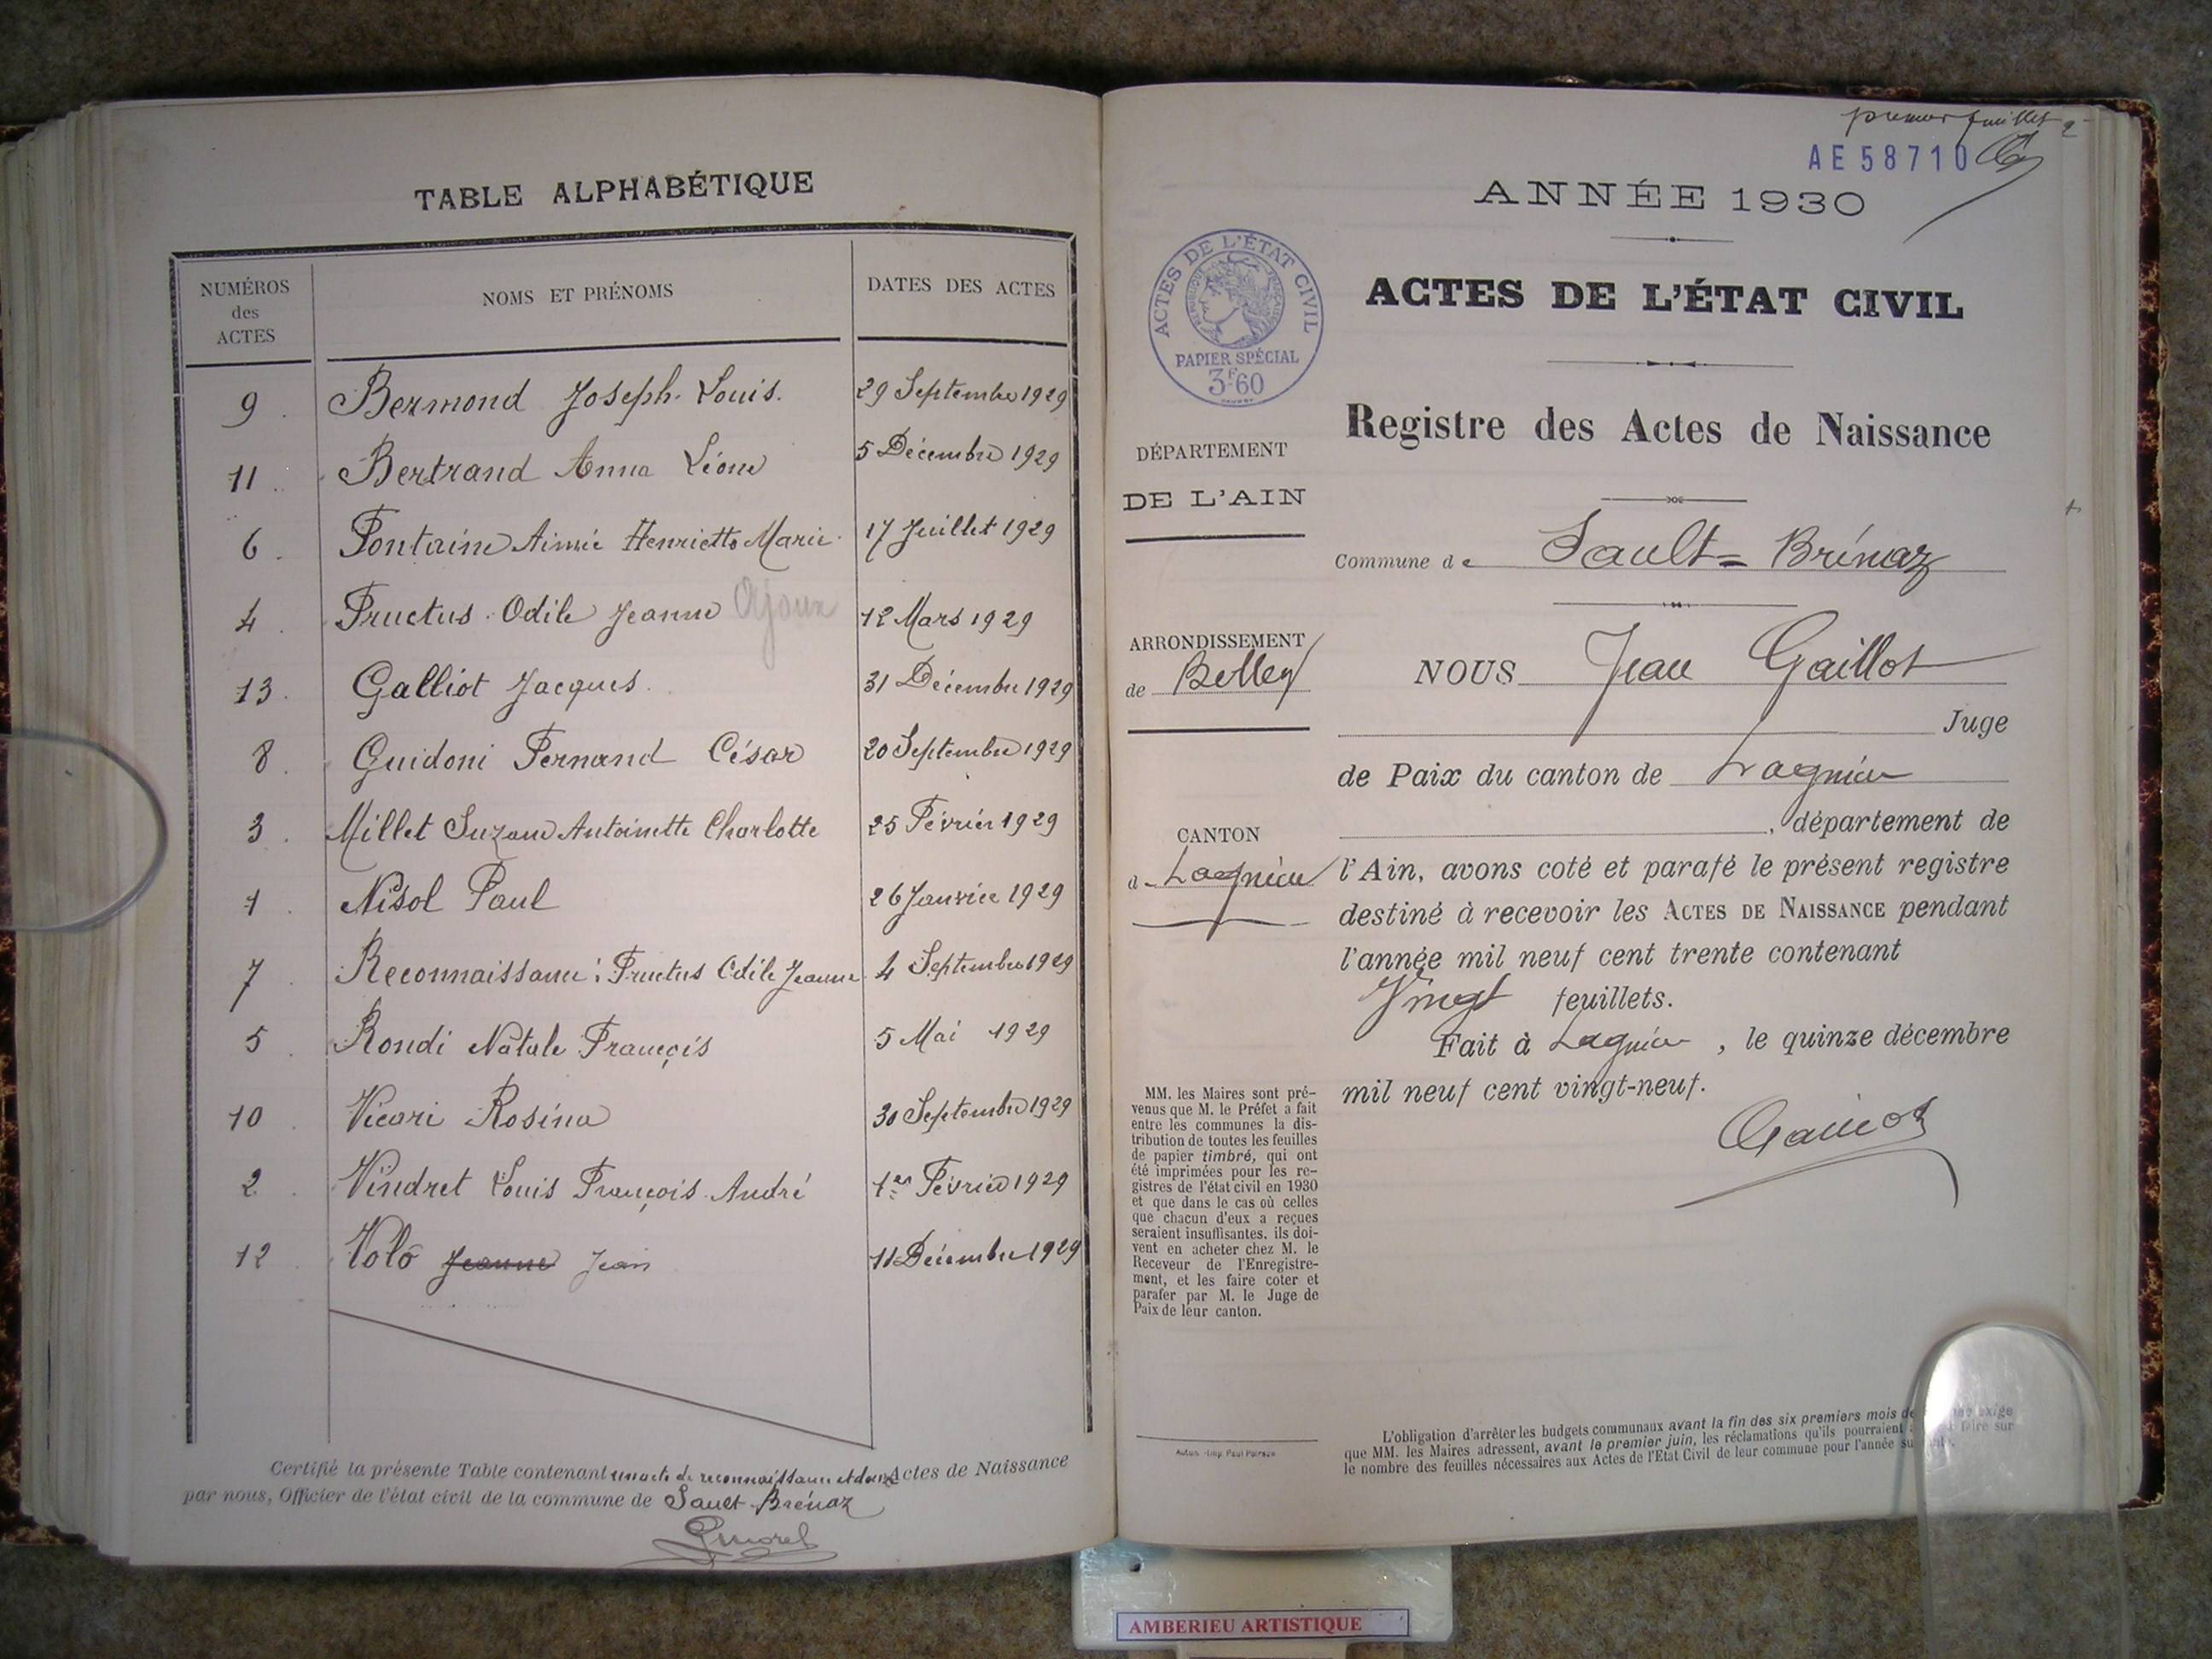 TABLE ALPHABÉTIQUE
NUMÉROS des ACTES NOMS ET PRÉNOMS DATES DES ACTES
9. Bermond Joseph-Louis. 29 Septembre 1929
11. Bertrand Anna Léone 5 Décembre 1929
6. Fontaine Aimée Henriette Marie. 17 Juillet 1929
4. Fructus Odile Jeanne Ajoux 12 Mars 1929
13. Galliot Jacques. 31 Décembre 1929
8. Guidoni Fernand César 20 Septembre 1929
3. Millet Suzane Antoinette Charlotte 25 Février 1929
1. Nisol Paul 26 Janvier 1929
7. Reconnaissance: Fructus Odile Jeanne. 4 Septembre 1929
5. Rondi Natale François 5 Mai 1929
10. Vicari Rosina 30 Septembre 1929
2. Vindret Louis François André 1er Février 1929
12. Volo Jeanne Jean 11 Décembre 1929
Certifié la présente Table contenant un acte de reconnaissance et douze Actes de Naissance
par nous, Officier de l'état civil de la commune de Sault-Brénaz
Pmorel
premier feuillet
AE 58710
ANNÉE 1930
ACTES DE L'ÉTAT CIVIL
RÉPUBLIQUE FRANÇAISE
PAPIER SPÉCIAL
3F60
ACTES DE L'ÉTAT CIVIL
Registre des Actes de Naissance
DÉPARTEMENT
DE L'AIN
Commune de Sault-Brénaz
ARRONDISSEMENT
de Belley
NOUS Jean Gaillot
Juge
de Paix du canton de Lagnieu
, département de
CANTON
d Lagnieu
l'Ain, avons coté et parafé le présent registre
destiné à recevoir les ACTES DE NAISSANCE pendant
l'année mil neuf cent trente contenant
Vingt feuillets.
Fait à Lagnieu, le quinze décembre
mil neuf cent vingt-neuf.
Gaillot
MM. les Maires sont pré-
venus que M. le Préfet a fait
entre les communes la dis-
tribution de toutes les feuilles
de papier timbré, qui ont
été imprimées pour les re-
gistres de l'état civil en 1930
et que dans le cas où celles
que chacun d'eux a reçues
seraient insuffisantes, ils doi-
vent en acheter chez M. le
Receveur de l'Enregistre-
ment, et les faire coter et
parafer par M. le Juge de
Paix de leur canton.
L'obligation d'arrêter les budgets communaux avant la fin des six premiers mois de exige
que MM. les Maires adressent, avant le premier juin, les réclamations qu'ils pourraient faire sur
le nombre des feuilles nécessaires aux Actes de l'Etat Civil de leur commune pour l'année
AMBERIEU ARTISTIQUE